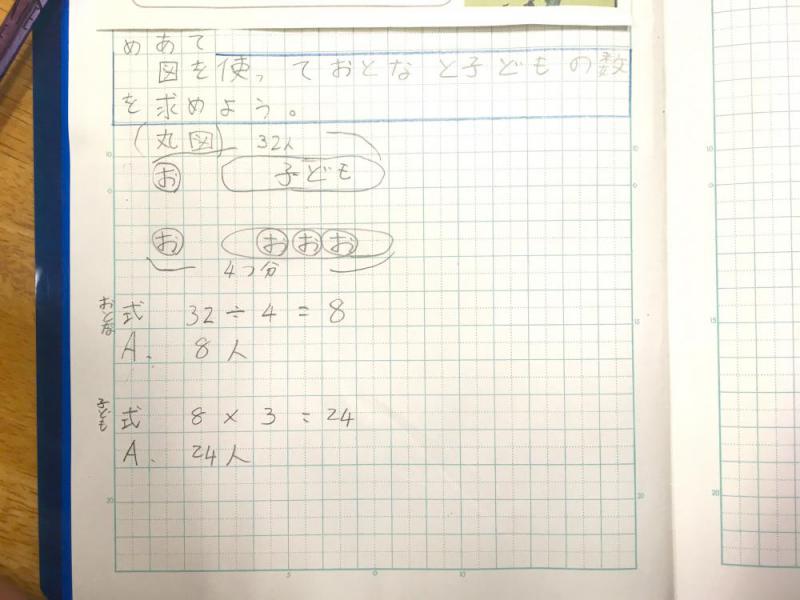 めあて
図を使っておとなと子どもの数
を求めよう。
(丸図) 32人
お 子ども
お おおお
4つ分
おとな 式 32÷4=8
A. 8人
子ども 式 8×3=24
A. 24人
10
15
20
5 0 10
10
15
20
10
15
20